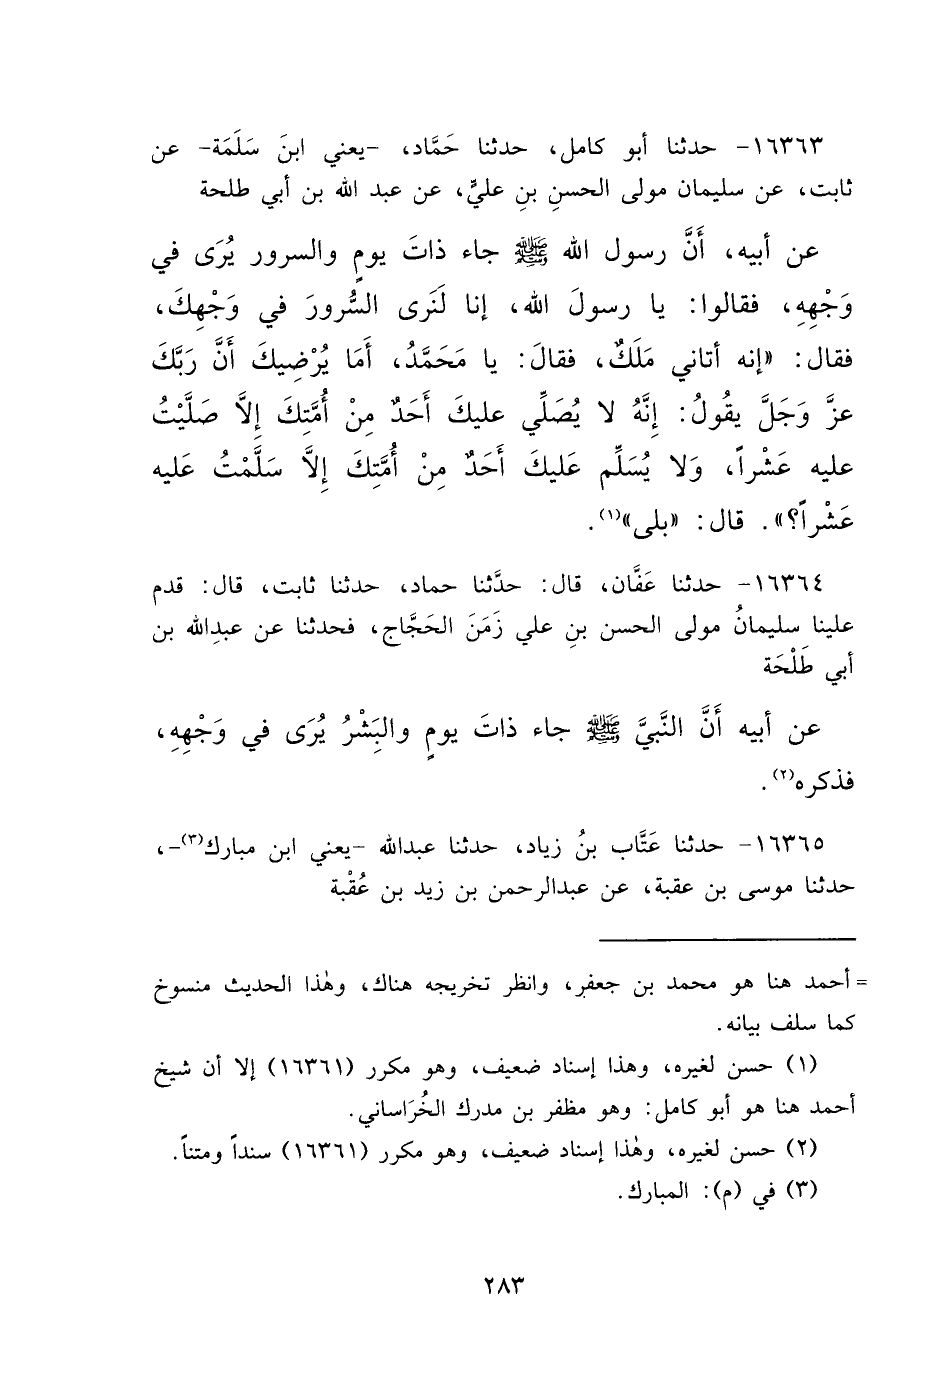 ١٦٣٦٣- حدثنا أبو كامل، حدثنا حَمَّاد، -يعني ابنَ سَلَمَة- عن
ثابت، عن سليمان مولى الحسنِ بنِ عليٍّ، عن عبد الله بن أبي طلحة
عن أبيه، أَنَّ رسول الله ﷺ جاء ذاتَ يومٍ والسرور يُرَى في
وَجْهِهِ، فقالوا: يا رسولَ الله، إنا لَنَرى السُّرورَ في وَجْهِكَ،
فقال: «إنه أتاني مَلَكٌ، فقالَ: يا مَحَمَّدُ، أَمَا يُرْضِيكَ أَنَّ رَبَّكَ
عزَّ وَجَلَّ يقُولُ: إِنَّهُ لا يُصَلِّي عليكَ أَحَدٌ مِنْ أُمَّتِكَ إِلاَّ صَلَّيْتُ
عليه عَشْراً، وَلا يُسَلِّم عَليكَ أَحَدٌ مِنْ أُمَّتِكَ إِلاَّ سَلَّمْتُ عَليه
عَشْراً؟». قال: «بلى»(١).
١٦٣٦٤- حدثنا عَفَّان، قال: حدَّثنا حماد، حدثنا ثابت، قال: قدم
علينا سليمانُ مولى الحسن بنِ علي زَمَنَ الحَجَّاج، فحدثنا عن عبدِالله بن
أبي طَلْحَة
عن أبيه أَنَّ النَّبيَّ ﷺ جاء ذاتَ يومٍ والبِشْرُ يُرَى في وَجْهِهِ،
فذكره(٢).
١٦٣٦٥- حدثنا عَتَّاب بنُ زياد، حدثنا عبدالله -يعني ابن مبارك(٣)-،
حدثنا موسى بن عقبة، عن عبدالرحمن بن زيد بن عُقْبة
= أحمد هنا هو محمد بن جعفر، وانظر تخريجه هناك، وهٰذا الحديث منسوخ
كما سلف بيانه.
(١) حسن لغيره، وهذا إسناد ضعيف، وهو مكرر (١٦٣٦١) إلا أن شيخ
أحمد هنا هو أبو كامل: وهو مظفر بن مدرك الخُرَاساني.
(٢) حسن لغيره، وهٰذا إسناد ضعيف، وهو مكرر (١٦٣٦١) سنداً ومتناً.
(٣) في (م): المبارك.
٢٨٣